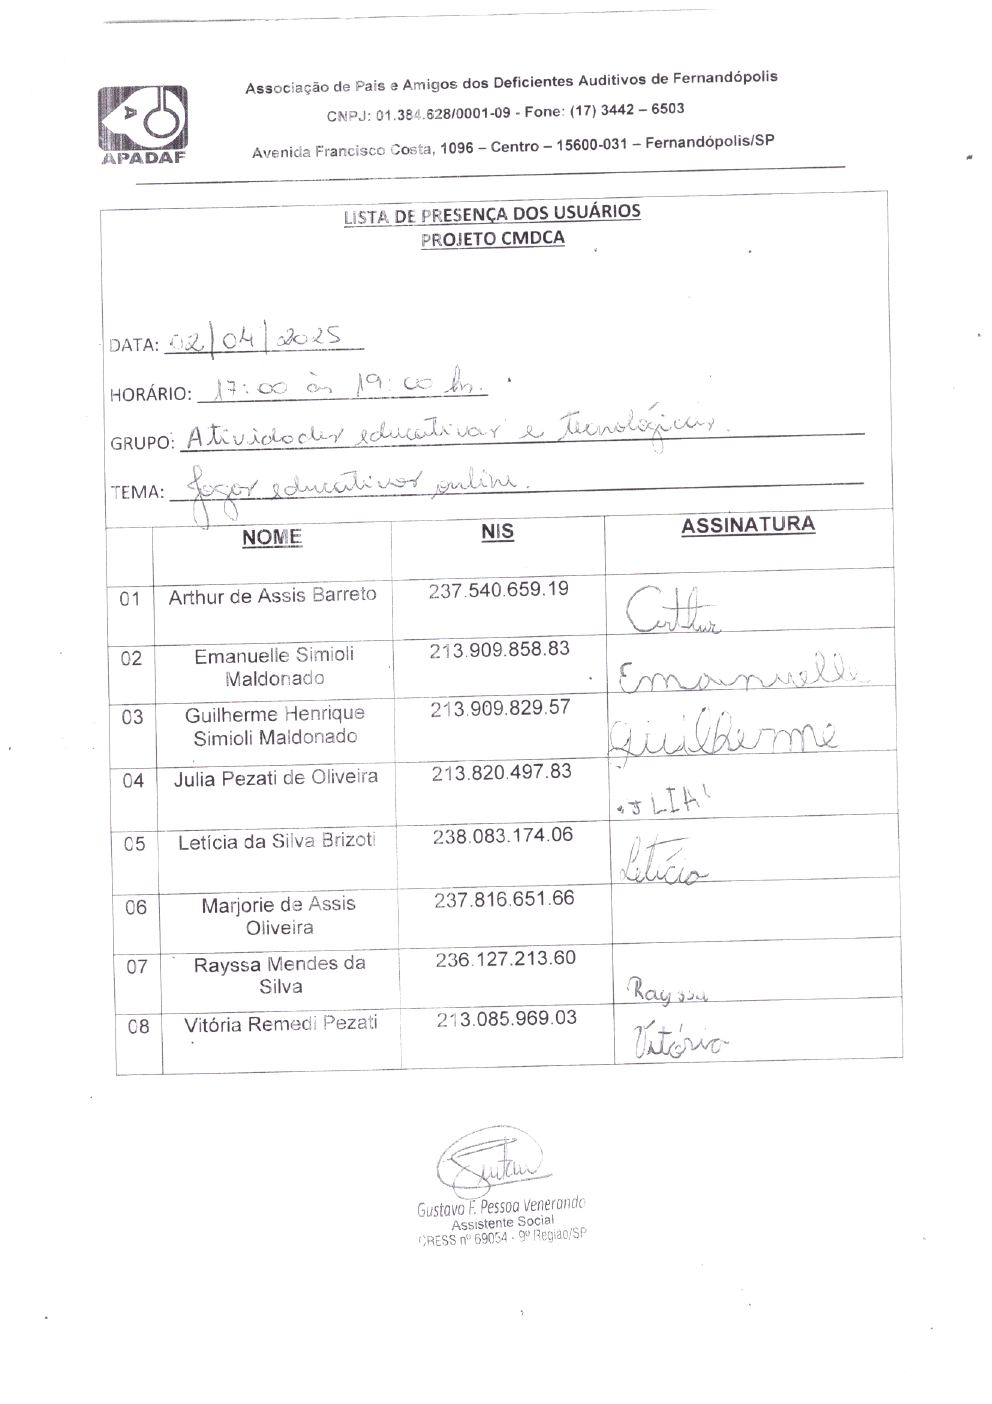 Associação de Pais e Amigos dos Deficientes Auditivos de Fernandópolis
CNPJ: 01.384.628/0001-09 - Fone: (17) 3442 – 6503
APADAF
Avenida Francisco Costa, 1096 – Centro – 15600-031 – Fernandópolis/SP
LISTA DE PRESENÇA DOS USUÁRIOS
PROJETO CMDCA
DATA: 02/04/2025
HORÁRIO: 17:00 às 19:00 hs.
GRUPO: Atividades educativas e tecnológicas.
TEMA: Jogos educativos online.
NOME NIS ASSINATURA
01 Arthur de Assis Barreto 237.540.659.19 Arthur
02 Emanuelle Simioli Maldonado 213.909.858.83 Emanuelle
03 Guilherme Henrique Simioli Maldonado 213.909.829.57 Guilherme
04 Julia Pezati de Oliveira 213.820.497.83 JLIA
05 Letícia da Silva Brizoti 238.083.174.06 Letícia
06 Marjorie de Assis Oliveira 237.816.651.66
07 Rayssa Mendes da Silva 236.127.213.60 Rayssa
08 Vitória Remedi Pezati 213.085.969.03 Vitória
Gustavo F. Pessoa Venerando
Assistente Social
CRESS nº 69054 - 9º Região/SP